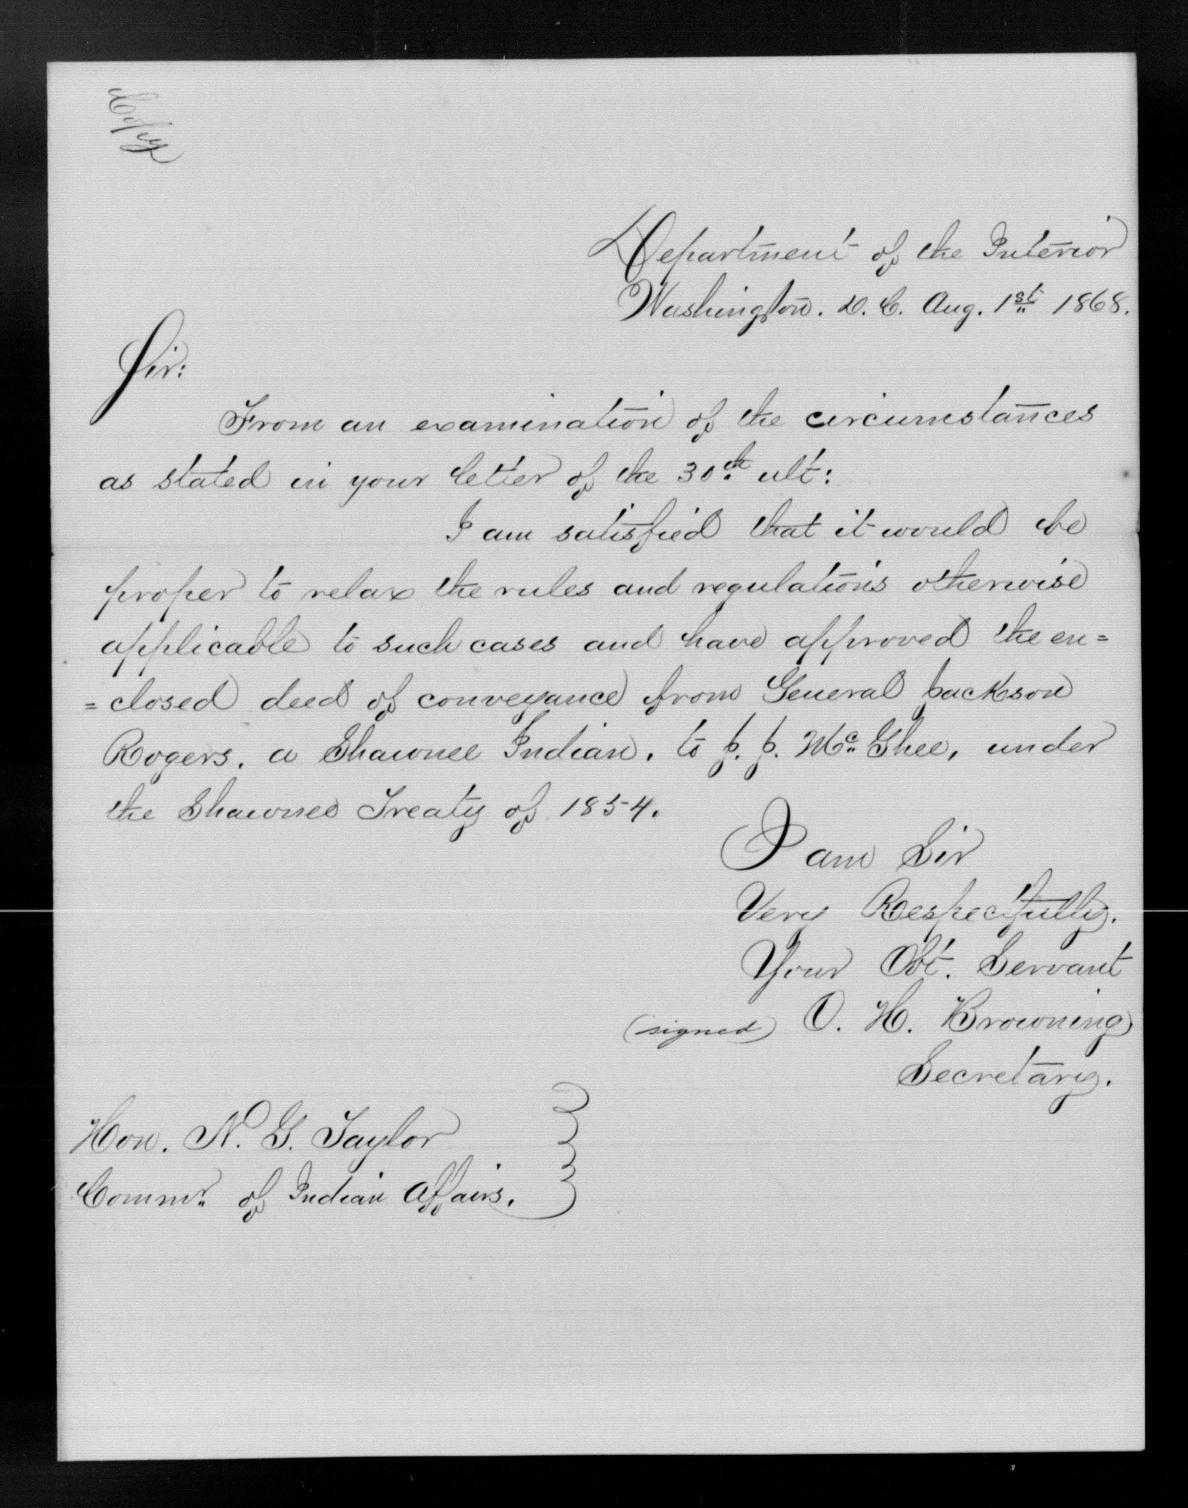 Copy
Department of the Interior
Washington. D. C. Aug. 1st 1868.
Sir:
From an examination of the circumstances
as stated in your letter of the 30th ult:
I am satisfied that it would be
proper to relax the rules and regulations otherwise
applicable to such cases and have approved the en=
=closed deed of conveyance from General Jackson
Rogers, a Shawnee Indian, to J. J. McGhee, under
the Shawnee Treaty of 1854.
I am Sir
Very Respectfully.
Your Obt. Servant
(signed) O. H. Browning
Secretary.
Hon. N. G. Taylor
Commr. of Indian Affairs.